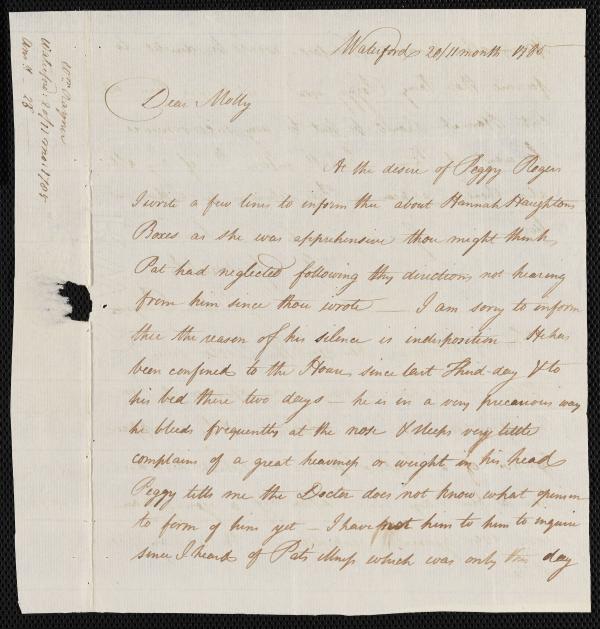 Waterford 20/11 month 1785
Dear Molly
At the desire of Peggy Rogers
I write a few lines to inform thee about Hannah Haughtons
Boxes as she was apprehensive thou might think
Pat had neglected following thy directions not hearing
from him since thou wrote — I am sorry to inform
thee the reason of his silence is indisposition – He has
been confined to the House since last Third day & to
his bed these two days – he is in a very precarious way
he bleeds frequently at the nose & sleeps very little
complains of a great heaviness or weight in his head
Peggy tells me the Doctor does not know what opinion
to form of him yet – I have not him to him to inquire
since I heard of Pat's illness which was only this day
Waterford: 20/11 mo: 1785
Ans:d 28